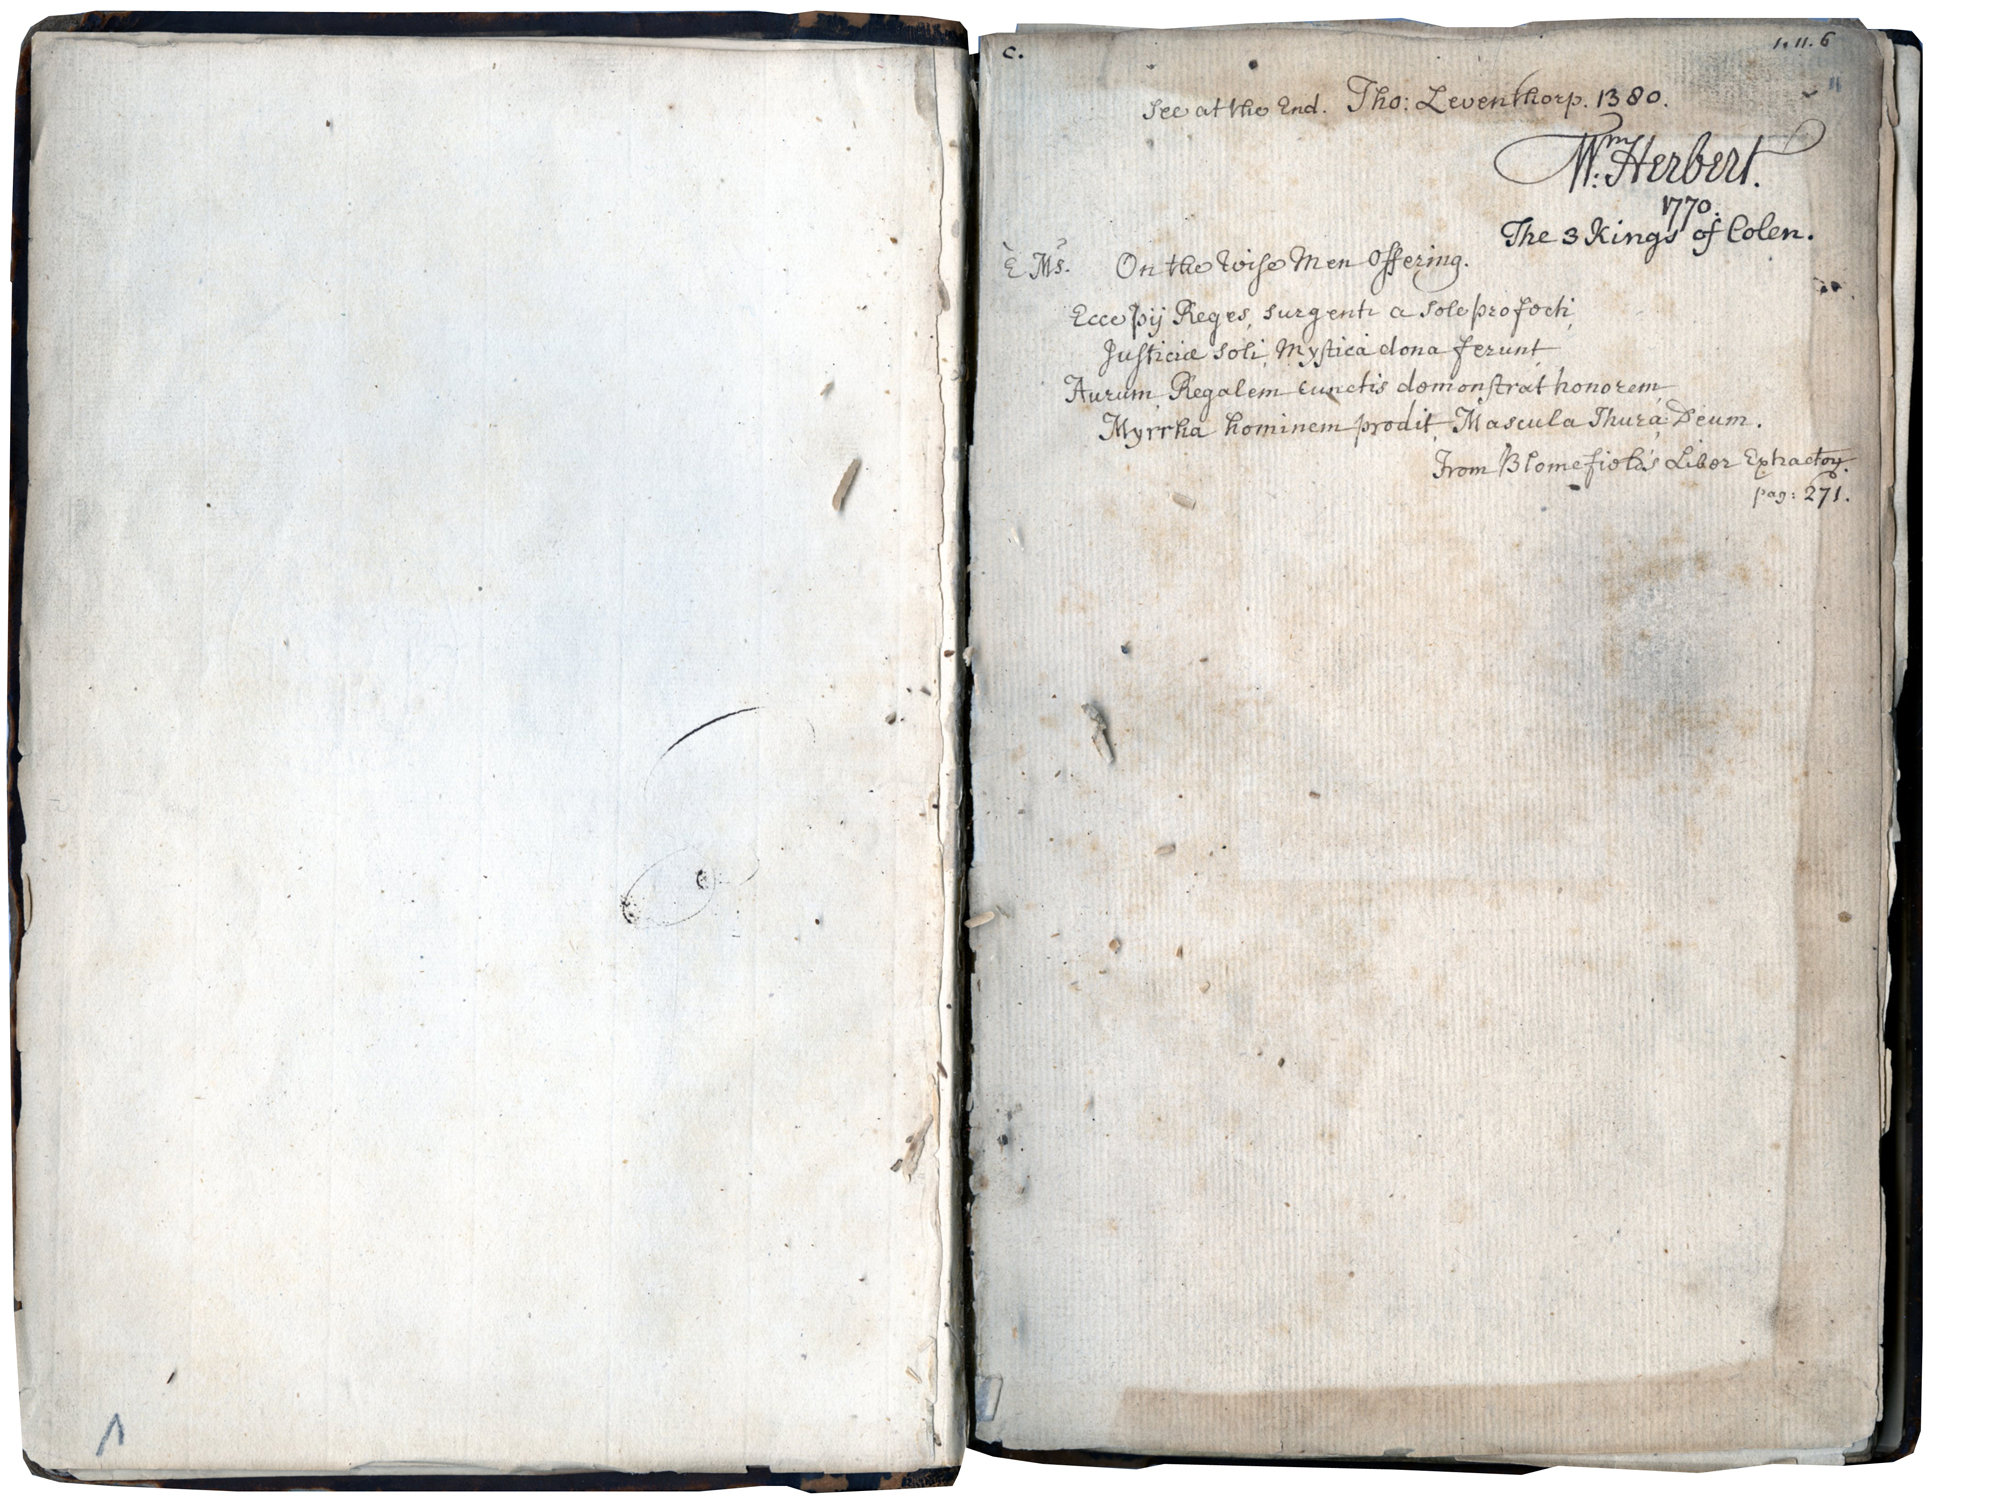 c. 1. 11. 6
See at the End. Tho: Leventhorp. 1380.
Wm: Herbert.
1770.
The 3 Kings of Colen.
È Ms. On the Wise Men Offering.
Ecce pij Reges, surgenti a sole profecti,
Justiciæ soli, Mystica dona ferunt
Aurum, Regalem cunctis demonstrat honorem,
Myrrha hominem prodit, Mascula Thura, Deum.
From Blomefield's Liber Extractor.
pag: 271.